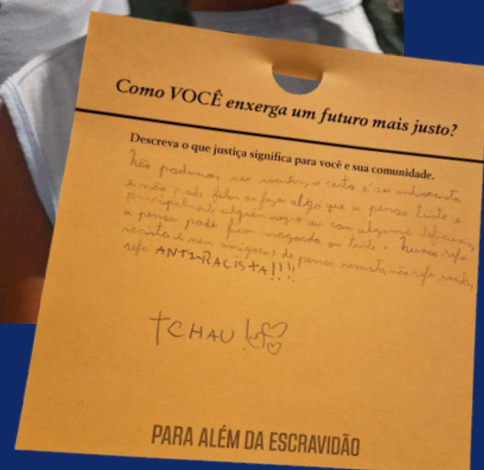 Como VOCÊ enxerga um futuro mais justo?
Descreva o que justiça significa para você e sua comunidade.
Não podemos ser racistas, o certo é ser antirracista
e não pode falar ou fazer algo que a pessoa triste e
principalmente alguém negro ou com alguma deficiencia,
a pessoa pode ficar magoada ou triste. Nunca seja
racista e nem amigo(a) de pessoa racista, não seja racista,
seja ANTI-RACISTA!!!!
TCHAU!
PARA ALÉM DA ESCRAVIDÃO